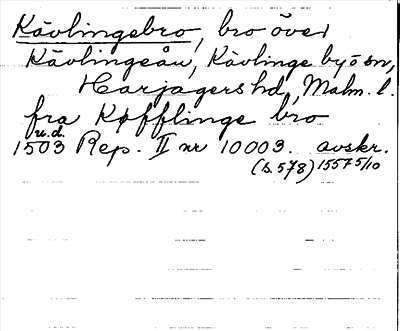 Kävlingebro, bro över
Kävlingeån, Kävlinge by o sn,
Harjagers hd, Malm. l.
fra Køfflinge bro
u.d.
1503 Rep. II nr 10003. avskr.
(s. 578) 1557 5/10